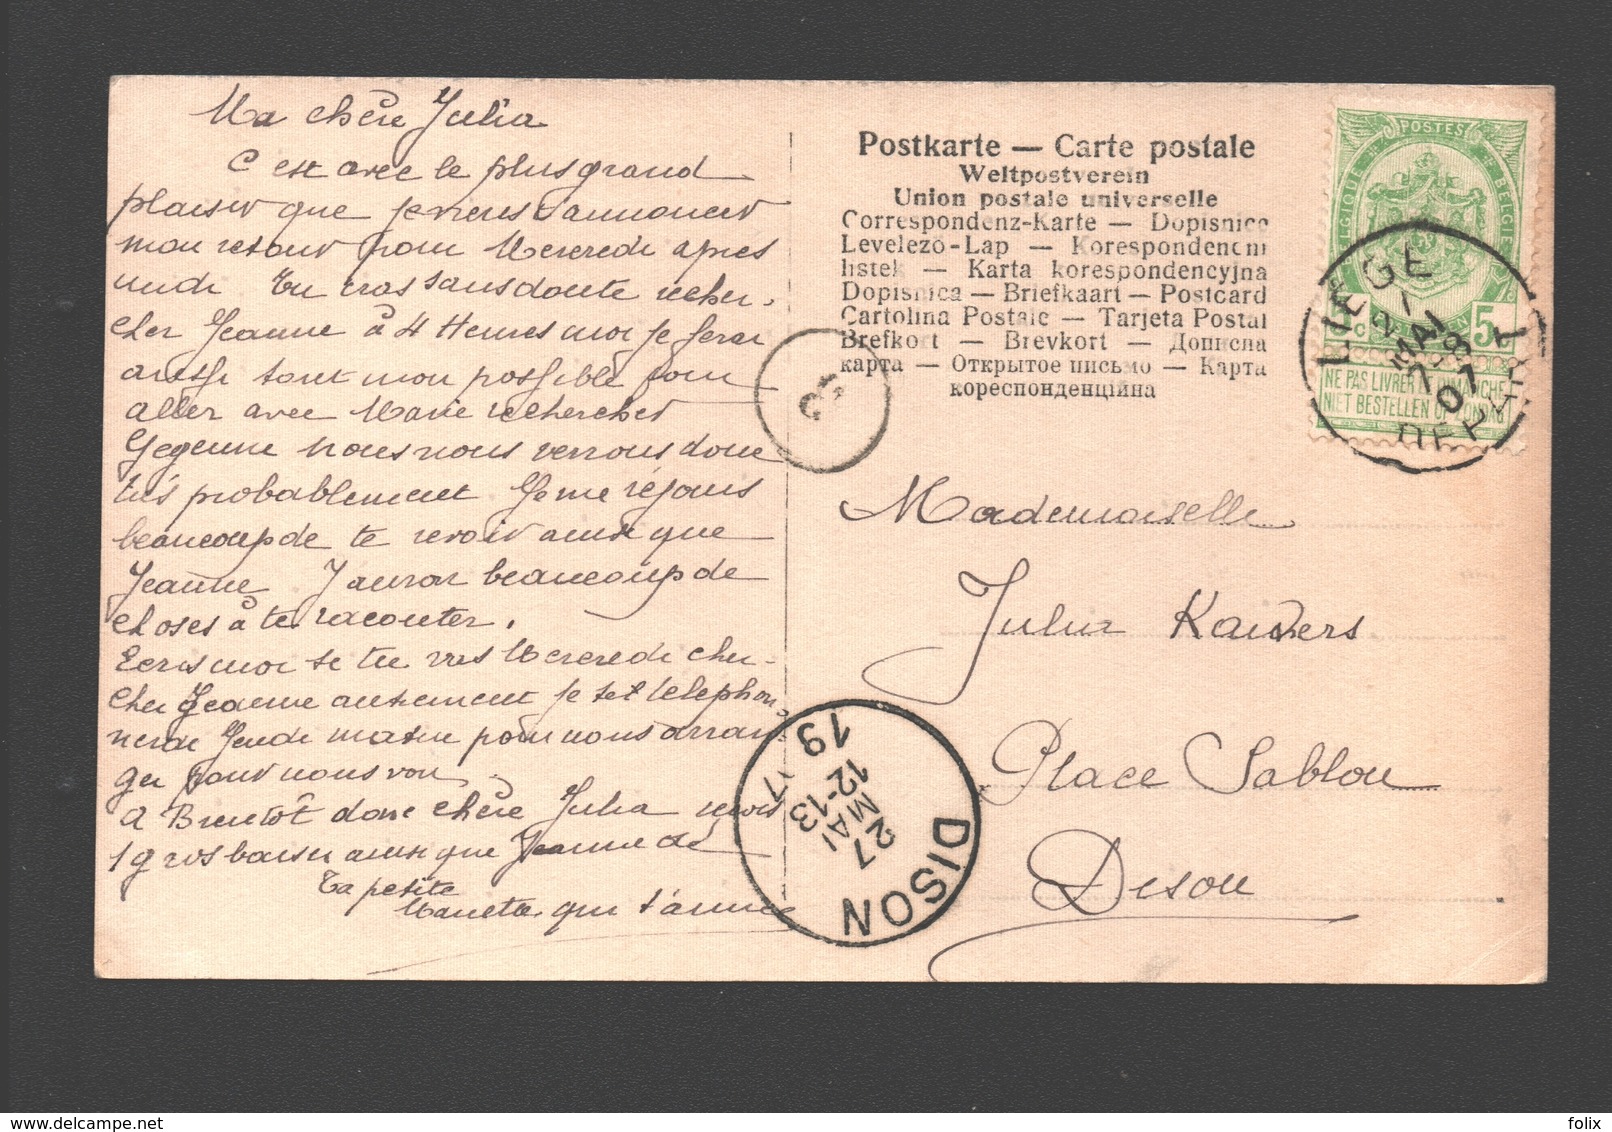 Ma chère Julia
C'est avec le plus grand
plaisir que je viens t'annoncer
mon retour pour Mercredi après
midi Tu iras sans doute recher-
cher Jeanne à 4 Heures moi je ferai
aussi tout mon possible pour
aller avec Marie rechercher
Gegenne nous nous verrons donc
très probablement Je me réjouis
beaucoup de te revoir ainsi que
Jeanne J'aurai beaucoup de
choses à te raconter.
Ecris moi si tu vas Mercredi cher-
cher Jeanne autrement je te telephon-
nerai Jeudi matin pour nous arran-
ger pour nous voir
A Bientôt donc chère Julia reçois
1 gros baiser ainsi que Jeanne de
Ta petite
qui t'aime
Postkarte — Carte postale
Weltpostverein
Union postale universelle
Correspondenz-Karte — Dopisnice
Levelezö-Lap — Korespondencni
listek — Karta korespondencyjna
Dopisnica — Briefkaart — Postcard
Cartolina Postale — Tarjeta Postal
Brefkort — Brevkort — Дописна
карта — Открытое письмо — Карта
кореспонденційна
POSTES
BELGIQUE BELGIE
5 c 5
NE PAS LIVRER LE DIMANCHE
NIET BESTELLEN OP ZONDAG
LIEGE
MAI
07
DEPART
Mademoiselle
Julia Kaivers
Place Sablon
Dison
DISON
27
MAI
12-13
19 07
folix delcampe.net